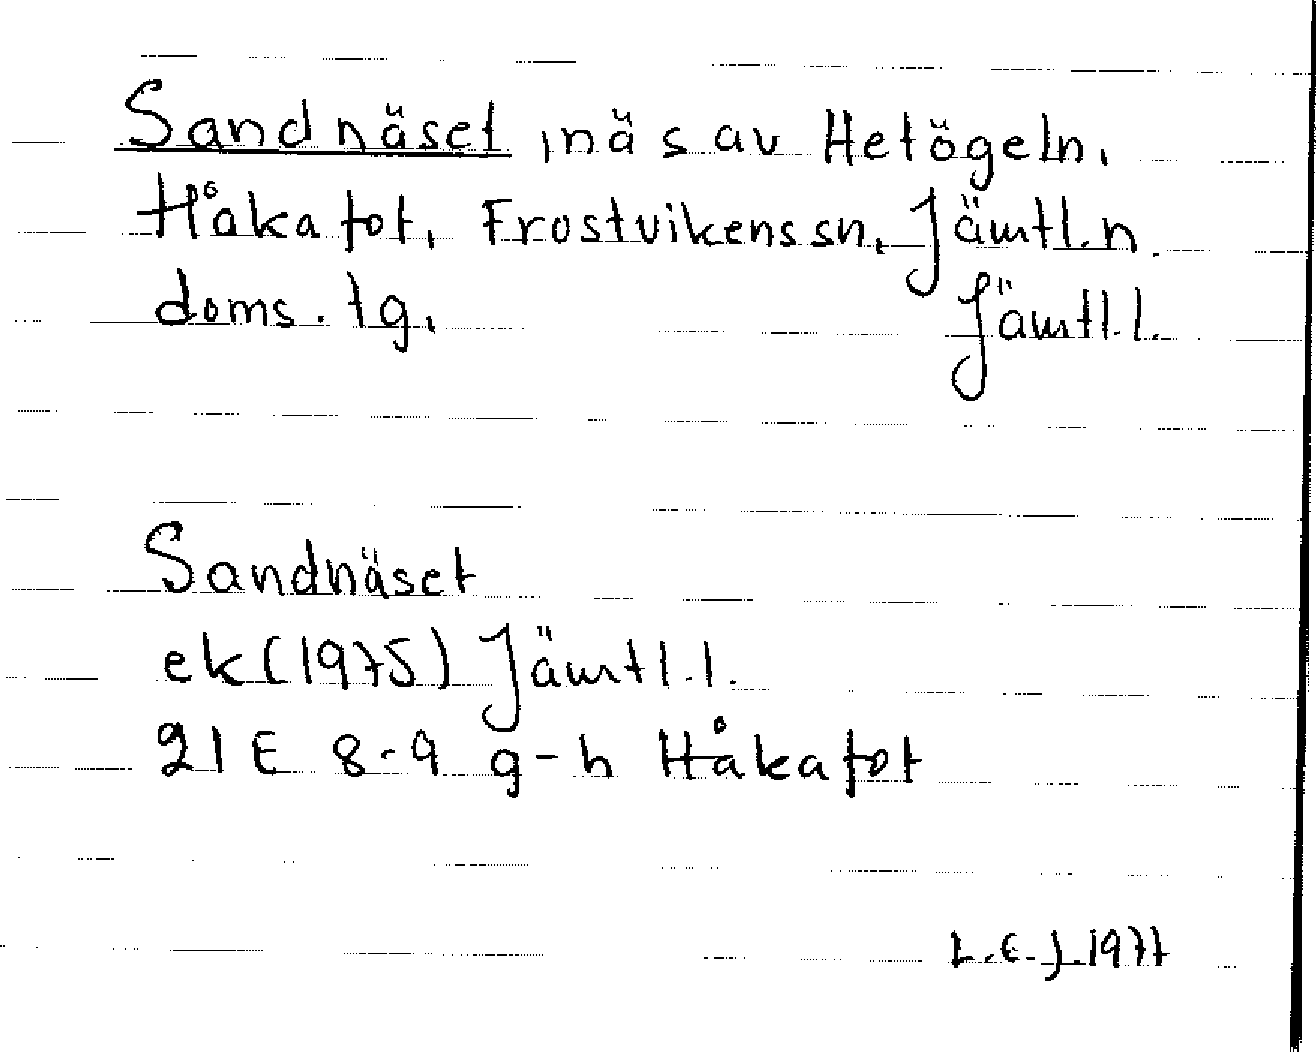 Sandnäset, näs av Hetögeln,
Håkafot, Frostvikens sn, Jämtl. n.
doms. tg,
Jämtl. l.
Sandnäset
ek (1975) Jämtl. l.
21 E 8-9 g-h Håkafot
L.E.J. 1977